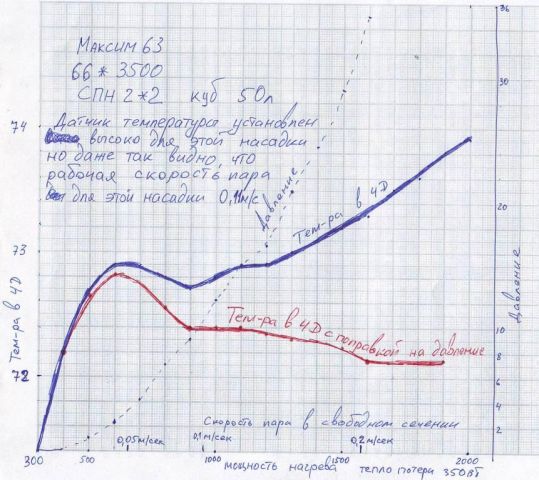 36
Максим 63
66 * 3500
СПН 2*2 куб 50л
30
Датчик температуры установлен
74
высоко для этой насадки
но даже так видно, что
рабочая скорость пара
для этой насадки 0,11м/с
Давление
Тем-ра в 4D
20
73
Давление
Тем-ра в 4D
Тем-ра в 4D с поправкой на давление
10
8
72
6
4
Скорость пара в свободном сечении
2
0,05м/сек
0,1м/сек
0,2м/сек
0
300
500
1000
1500
2000
мощность нагрева тепло потери 350Вт